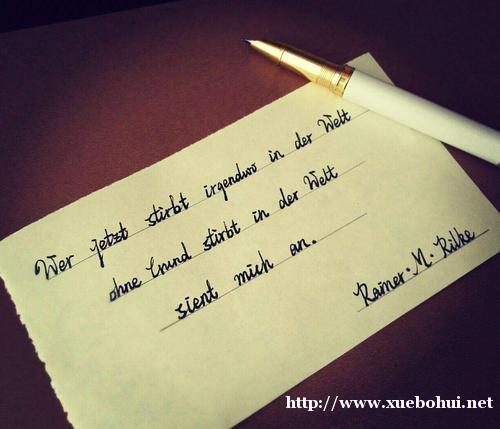 Wer jetzt stirbt irgendwo in der Welt
ohne Grund stirbt in der Welt
sient mich an.
Rainer·M·Rilke
http://www.xuebohui.net